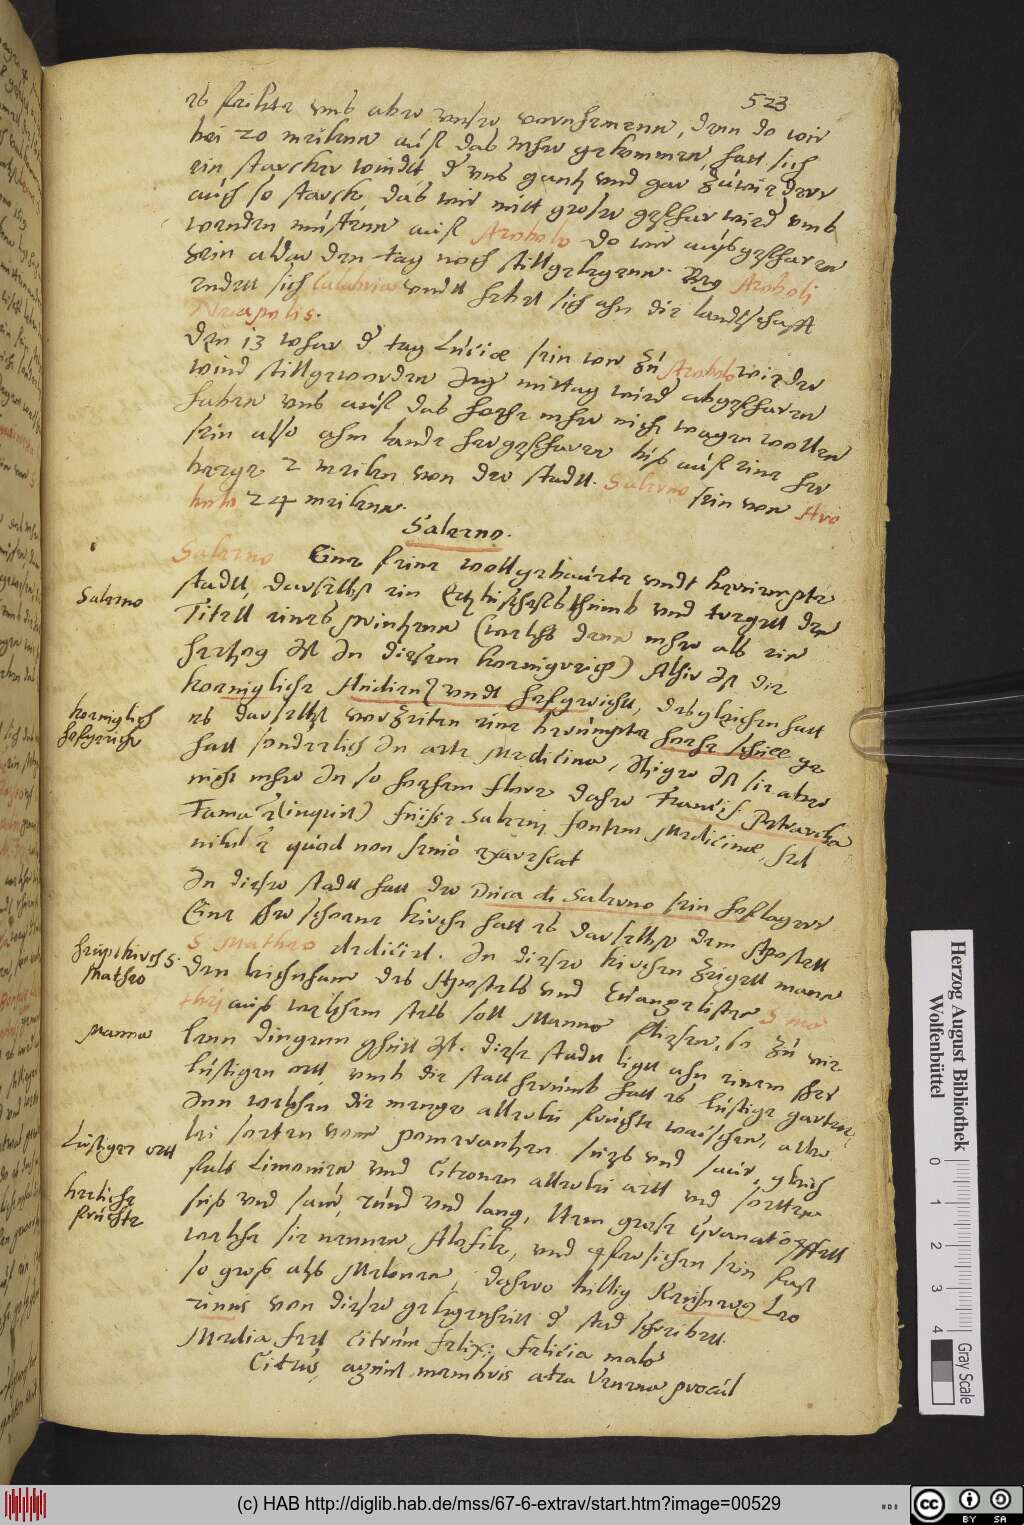 523
es seilete vns aber vnser vornehmenn, denn do wir
bei 20 meilenn auff das Meher gekommen, hatt sich
ein starcker windtt, d vns gantz vnd gar zuwieder
auch so starck, das wir mitt grosser geffhar wied vmb
wenden müstenn auff Arobolo do wir aussgeffharen
sein aldar den tag noch stillgelegenn. Bey Arobolj
endett sich Calabria vndtt hebet sich ahn die landtschafft
Neapolis.
Den 13 wahr d tag Luciæ sein wir zu Arobolo wieder
wind stillgewordenn den mittag wied abgeffharen
haben vns auff das hoche meher nich wagen wollen
sein also ahm lande hergeffharen biss auff eine her
berge 2 meilen von der stadtt. Salerno sein von Aro
bolo 24 meilenn.
Salerno.
Salerno Eine feine wollgebaürte vndt beruempte
stadtt, daselbst ein Ertzbischoffsthumb vnd tregett den
Titell eines printzenn (welchs denn meher als ein
hertzog ist in diesem koenigreich) Alhir ist die
koenigliche Audientz vndt hofgericht, desgleichen hatt
es daselbst vorzeiten eine berumpte hoche schuee ge
hatt sonderlich in arte Medicina, itziger ist sie aber
nicht meher in so hochem flore daher Francis. Petrarcha
Fama e (inquit) fuisse Salerni fontem Medicinæ, sed
nihil e quod non senio exarescat
In dieser stadtt hatt der Duca di Salerno sein hofflagerr
Eine sher schoene kirche hatt es daselbst dem Apostell
S Matheo dedicirt. In dieser kirchen zeigett mann
den leichnham des Apostels vnd Euangelisten S Ma
thej auss welchem stets soll Manna fliessen, so zu vie
lenn dingenn ghutt ist. diese stadtt ligtt ahn einem sher
lustigen ortt, vmb die statt herumb hatt es lustige garten
inn welchen die menge allerlei fruchte waschen, aller
lei sorten vonn pomerantzen suess vnd saur, gleich
fals Limonien vnd Citronen allerlei artt vnd sortten
suss vnd saur, rund vnd lang, Item grosse Granatoepffell
welche sie nennen, vnd sein fast
so gross alss Melonen, dahero billig Reichneg Leo
rinus von dieser gelegenheitt d stad schreibett.
Media fert citrum felix: felicia mala
Citrus, agnist membris atra Venena procul
Salerno
koeniglich
hofgericht
haupt kirch S.
Matheo
Manna
Lustiger ortt
herliche
fruchte
Herzog August Bibliothek
Wolfenbüttel
0 1 2 3 4
Gray Scale
(c) HAB http://diglib.hab.de/mss/67-6-extrav/start.htm?image=00529
cc BY SA